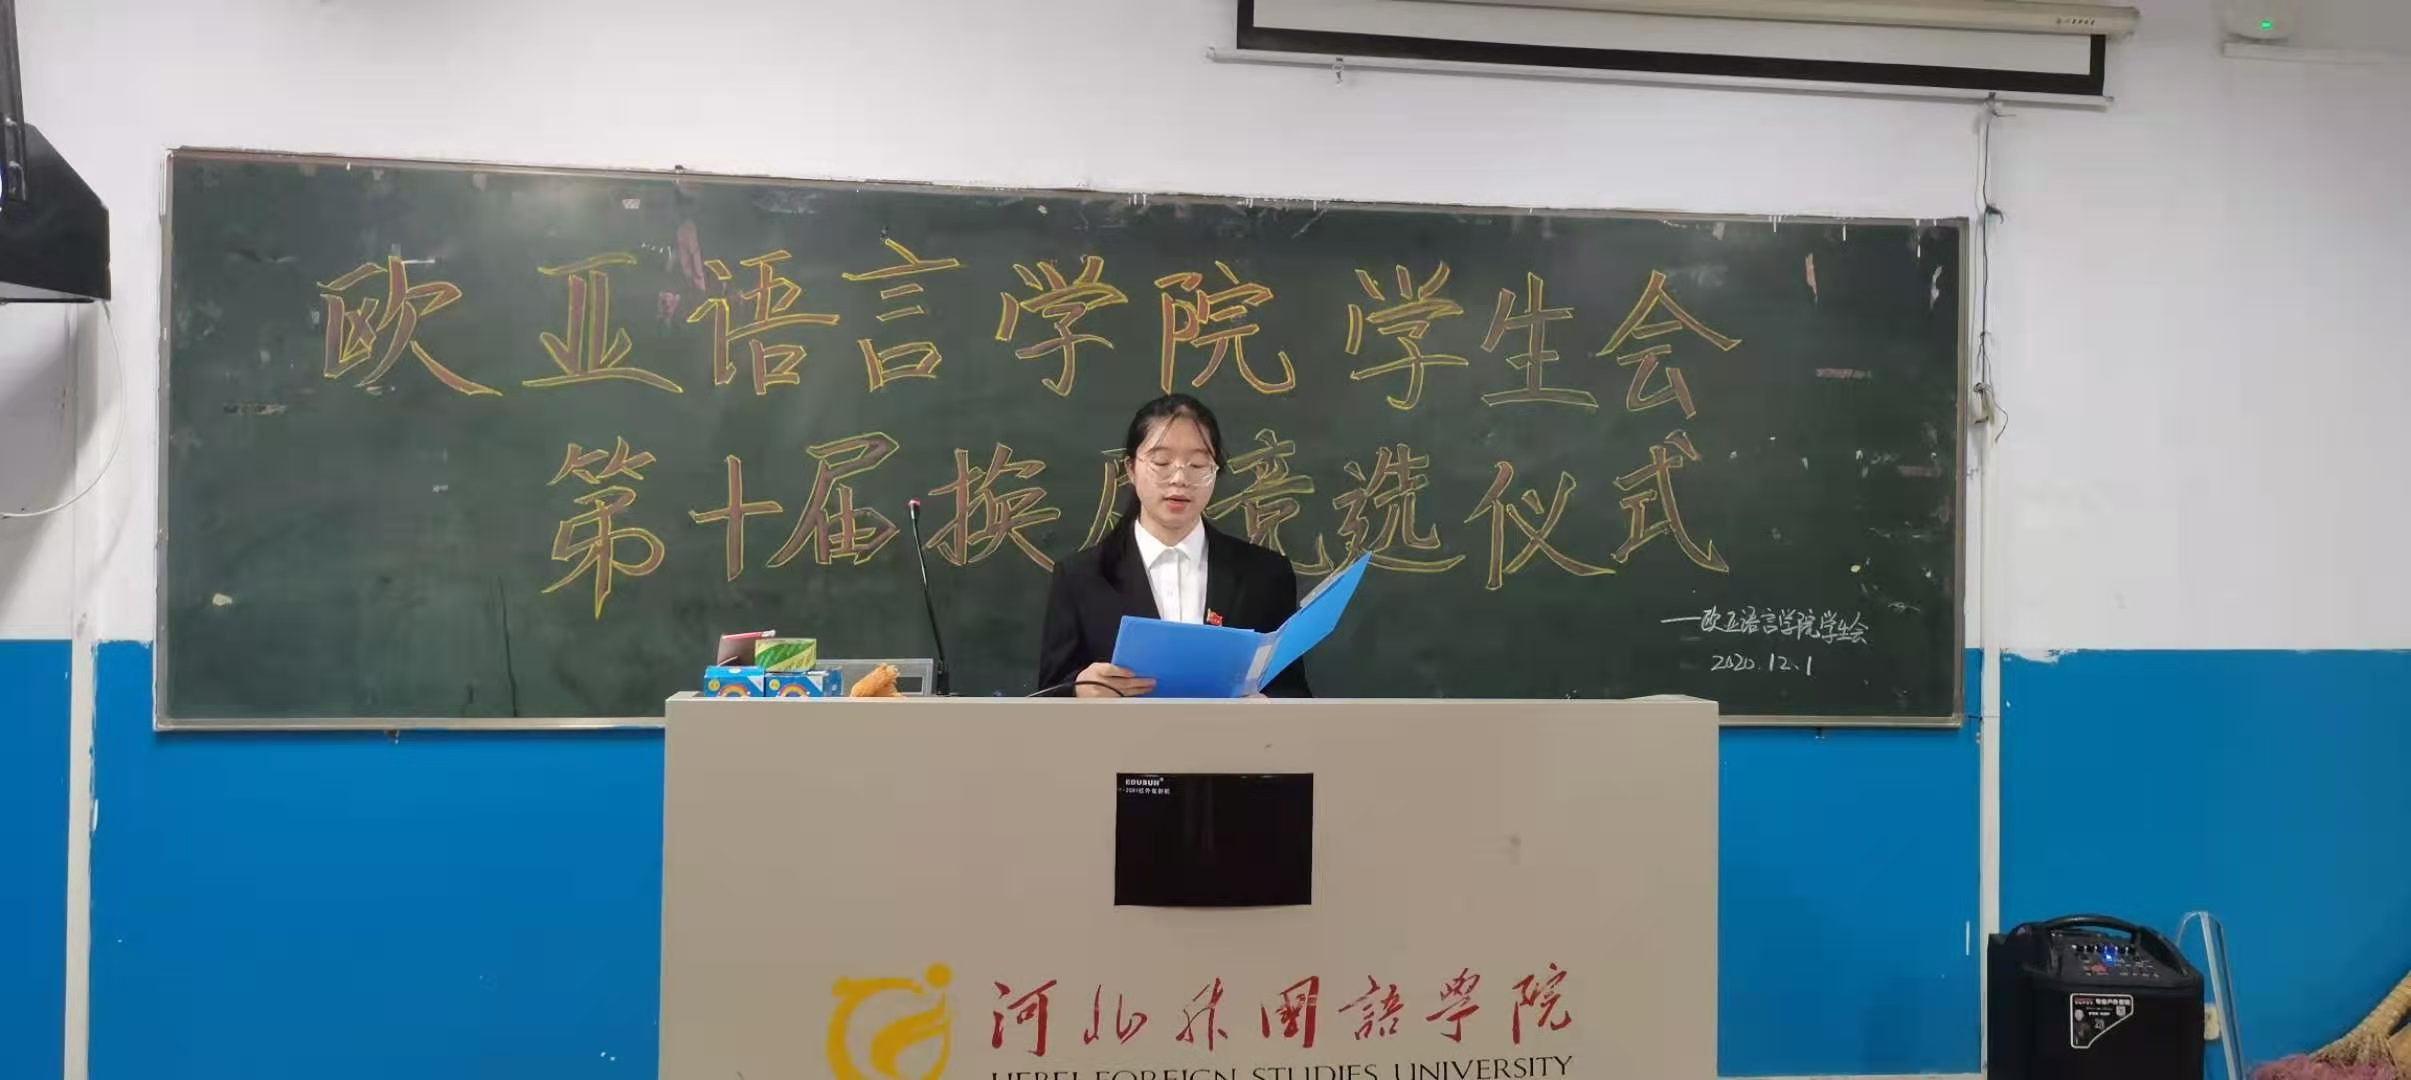 欧亚语言学院学生会
第十届换届竞选仪式
一欧亚语言学院学生会
2020.12.1
EDUSUN
河北外国語學院
HEBEI FOREIGN STUDIES UNIVERSITY